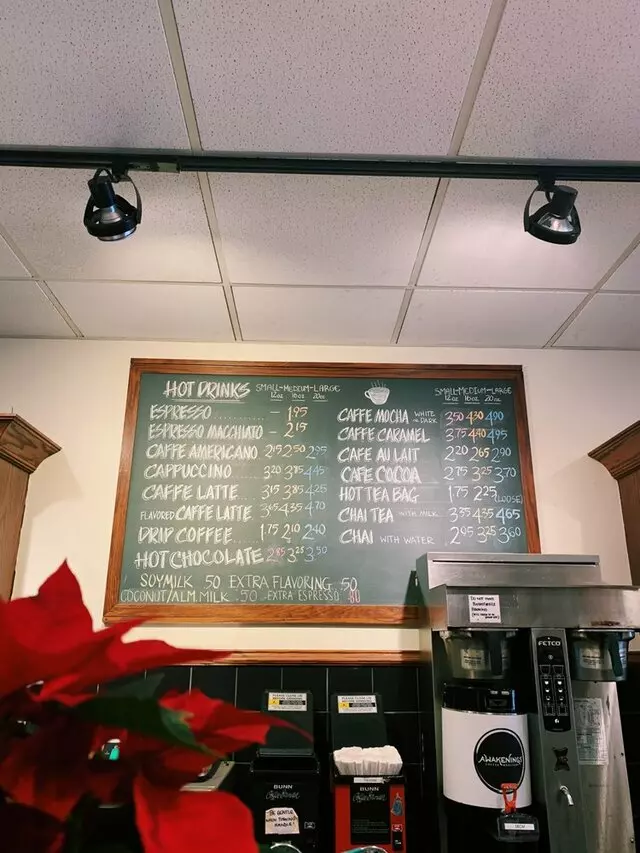 HOT DRINKS SMALL-MEDIUM-LARGE
12oz 16oz 20oz
ESPRESSO — 1.95
ESPRESSO MACCHIATO — 2.15
CAFFE AMERICANO 2.15 2.50 2.95
CAPPUCCINO 3.20 3.75 4.45
CAFFE LATTE 3.15 3.85 4.25
FLAVORED CAFFE LATTE 3.65 4.35 4.70
DRIP COFFEE 1.75 2.10 2.40
HOT CHOCOLATE 2.85 3.25 3.50
SOYMILK .50 EXTRA FLAVORING .50
COCONUT/ALM.MILK .50 EXTRA ESPRESSO .80
SMALL-MEDIUM-LARGE
12oz 16oz 20oz
CAFFE MOCHA WHITE OR DARK 3.50 4.30 4.90
CAFFE CARAMEL 3.75 4.40 4.95
CAFE AU LAIT 2.20 2.65 2.90
CAFE COCOA 2.75 3.25 3.70
HOT TEA BAG 1.75 2.25 (LOOSE)
CHAI TEA WITH MILK 3.55 4.35 4.65
CHAI WITH WATER 2.95 3.25 3.60
FETCO
AWAKENINGS
DECAF
PLEASE CLEAN UP
BEFORE GRINDING
PLEASE CLEAN UP
BEFORE GRINDING
BUNN
BUNN
BE GENTLE
WHEN TURNING
HANDLE!